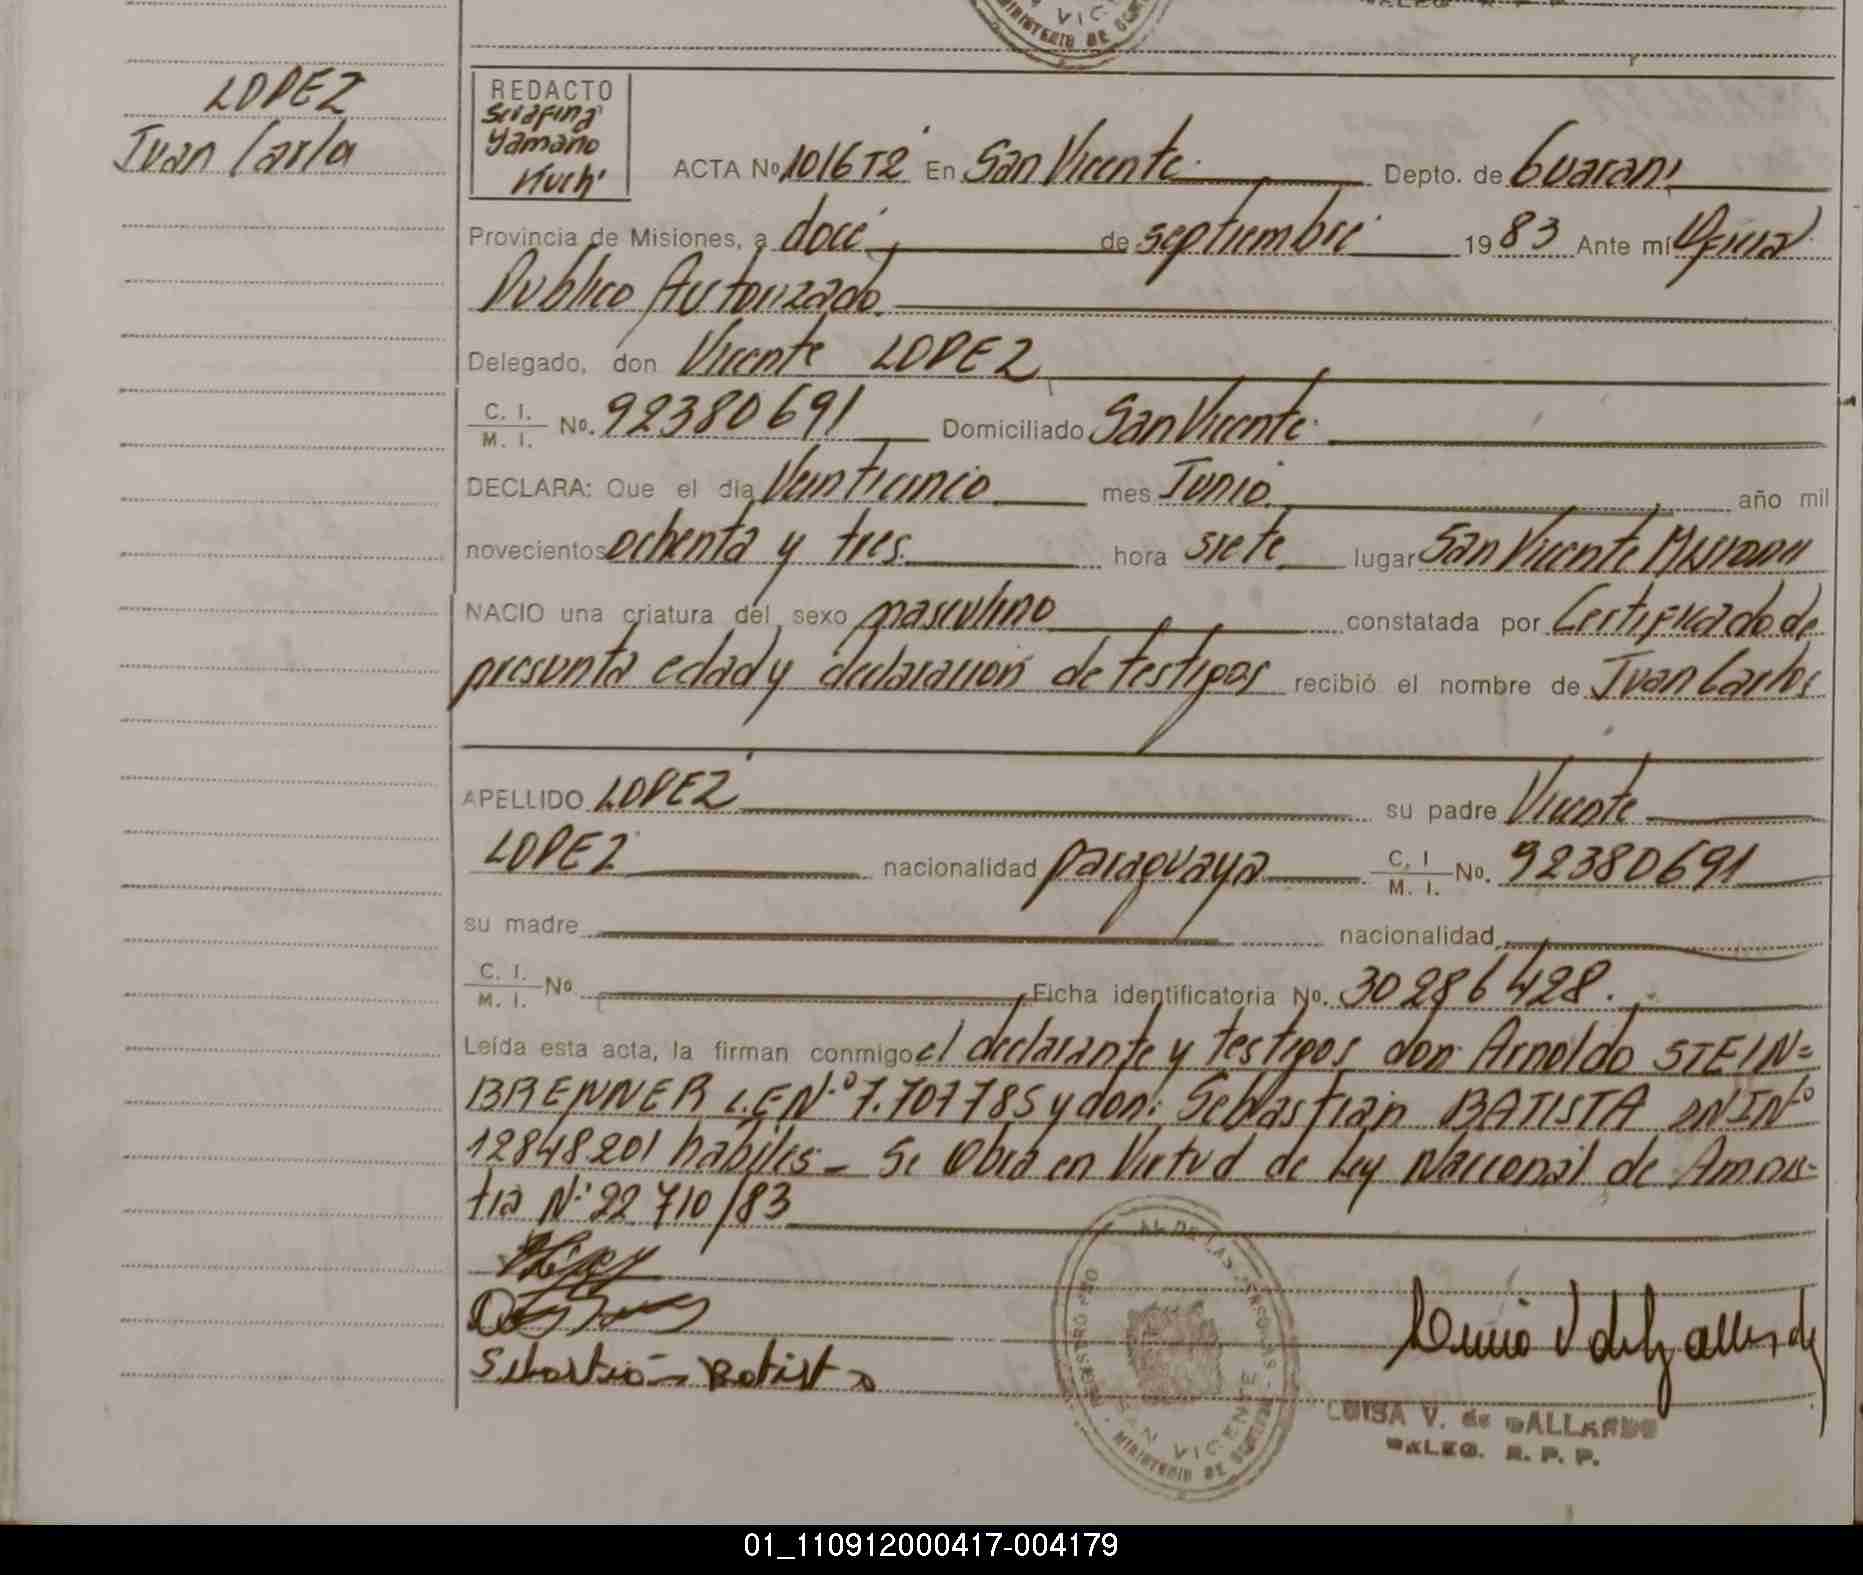 MINISTERIO DE
LOPEZ
Juan Carlo
REDACTO
Serafina
Yamaño
Kuchi
ACTA No 1016T2 En San Vicente Depto. de Guarani
Provincia de Misiones, a doce de septiembre 1983 Ante mí Oficial
Publico Autorizado
Delegado, don Vicente LOPEZ
C. I. / M. I. No. 92380691 Domiciliado San Vicente
DECLARA: Que el día Veinticinco mes Junio año mil
novecientos ochenta y tres hora siete lugar San Vicente Misiones
NACIO una criatura del sexo masculino constatada por Certificado de
presunta edad y declaracion de testigos recibió el nombre de Juan Carlos
APELLIDO LOPEZ su padre Vicente
LOPEZ nacionalidad paraguaya C. I / M. I. No. 92380691
su madre nacionalidad
C. I. / M. I. No Ficha identificatoria No. 30286428.
Leída esta acta, la firman conmigo el declarante y testigos don: Arnoldo STEIN=
BRENNER L.E.Nº 7.707785 y don: Sebastian BATISTA DNI Nº
12848201 habiles - Se Obra en Virtud de Ley Nacional de Amnis-
tia Nº 22710/83
Sebastián Batista
SAN VICENTE
MINISTERIO DE GOBIERNO
LUISA V. de GALLARDO
DELEG. R. P. P.
01_110912000417-004179